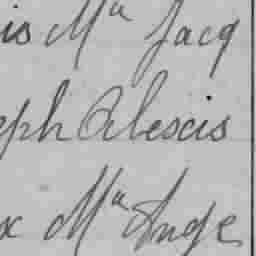 is Ma Jacq
eph Alexcis
x Ma Ange